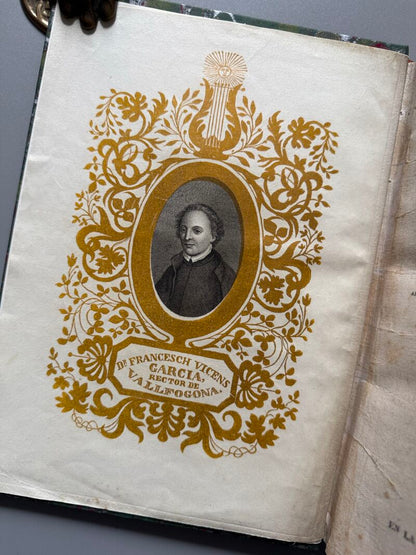 Dr. FRANCESCH VICENS
GARCIA,
RECTOR DE
VALLFOGONA.
EN LA